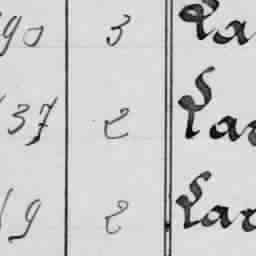 90 3 La
137 2 Lar
19 2 Lar